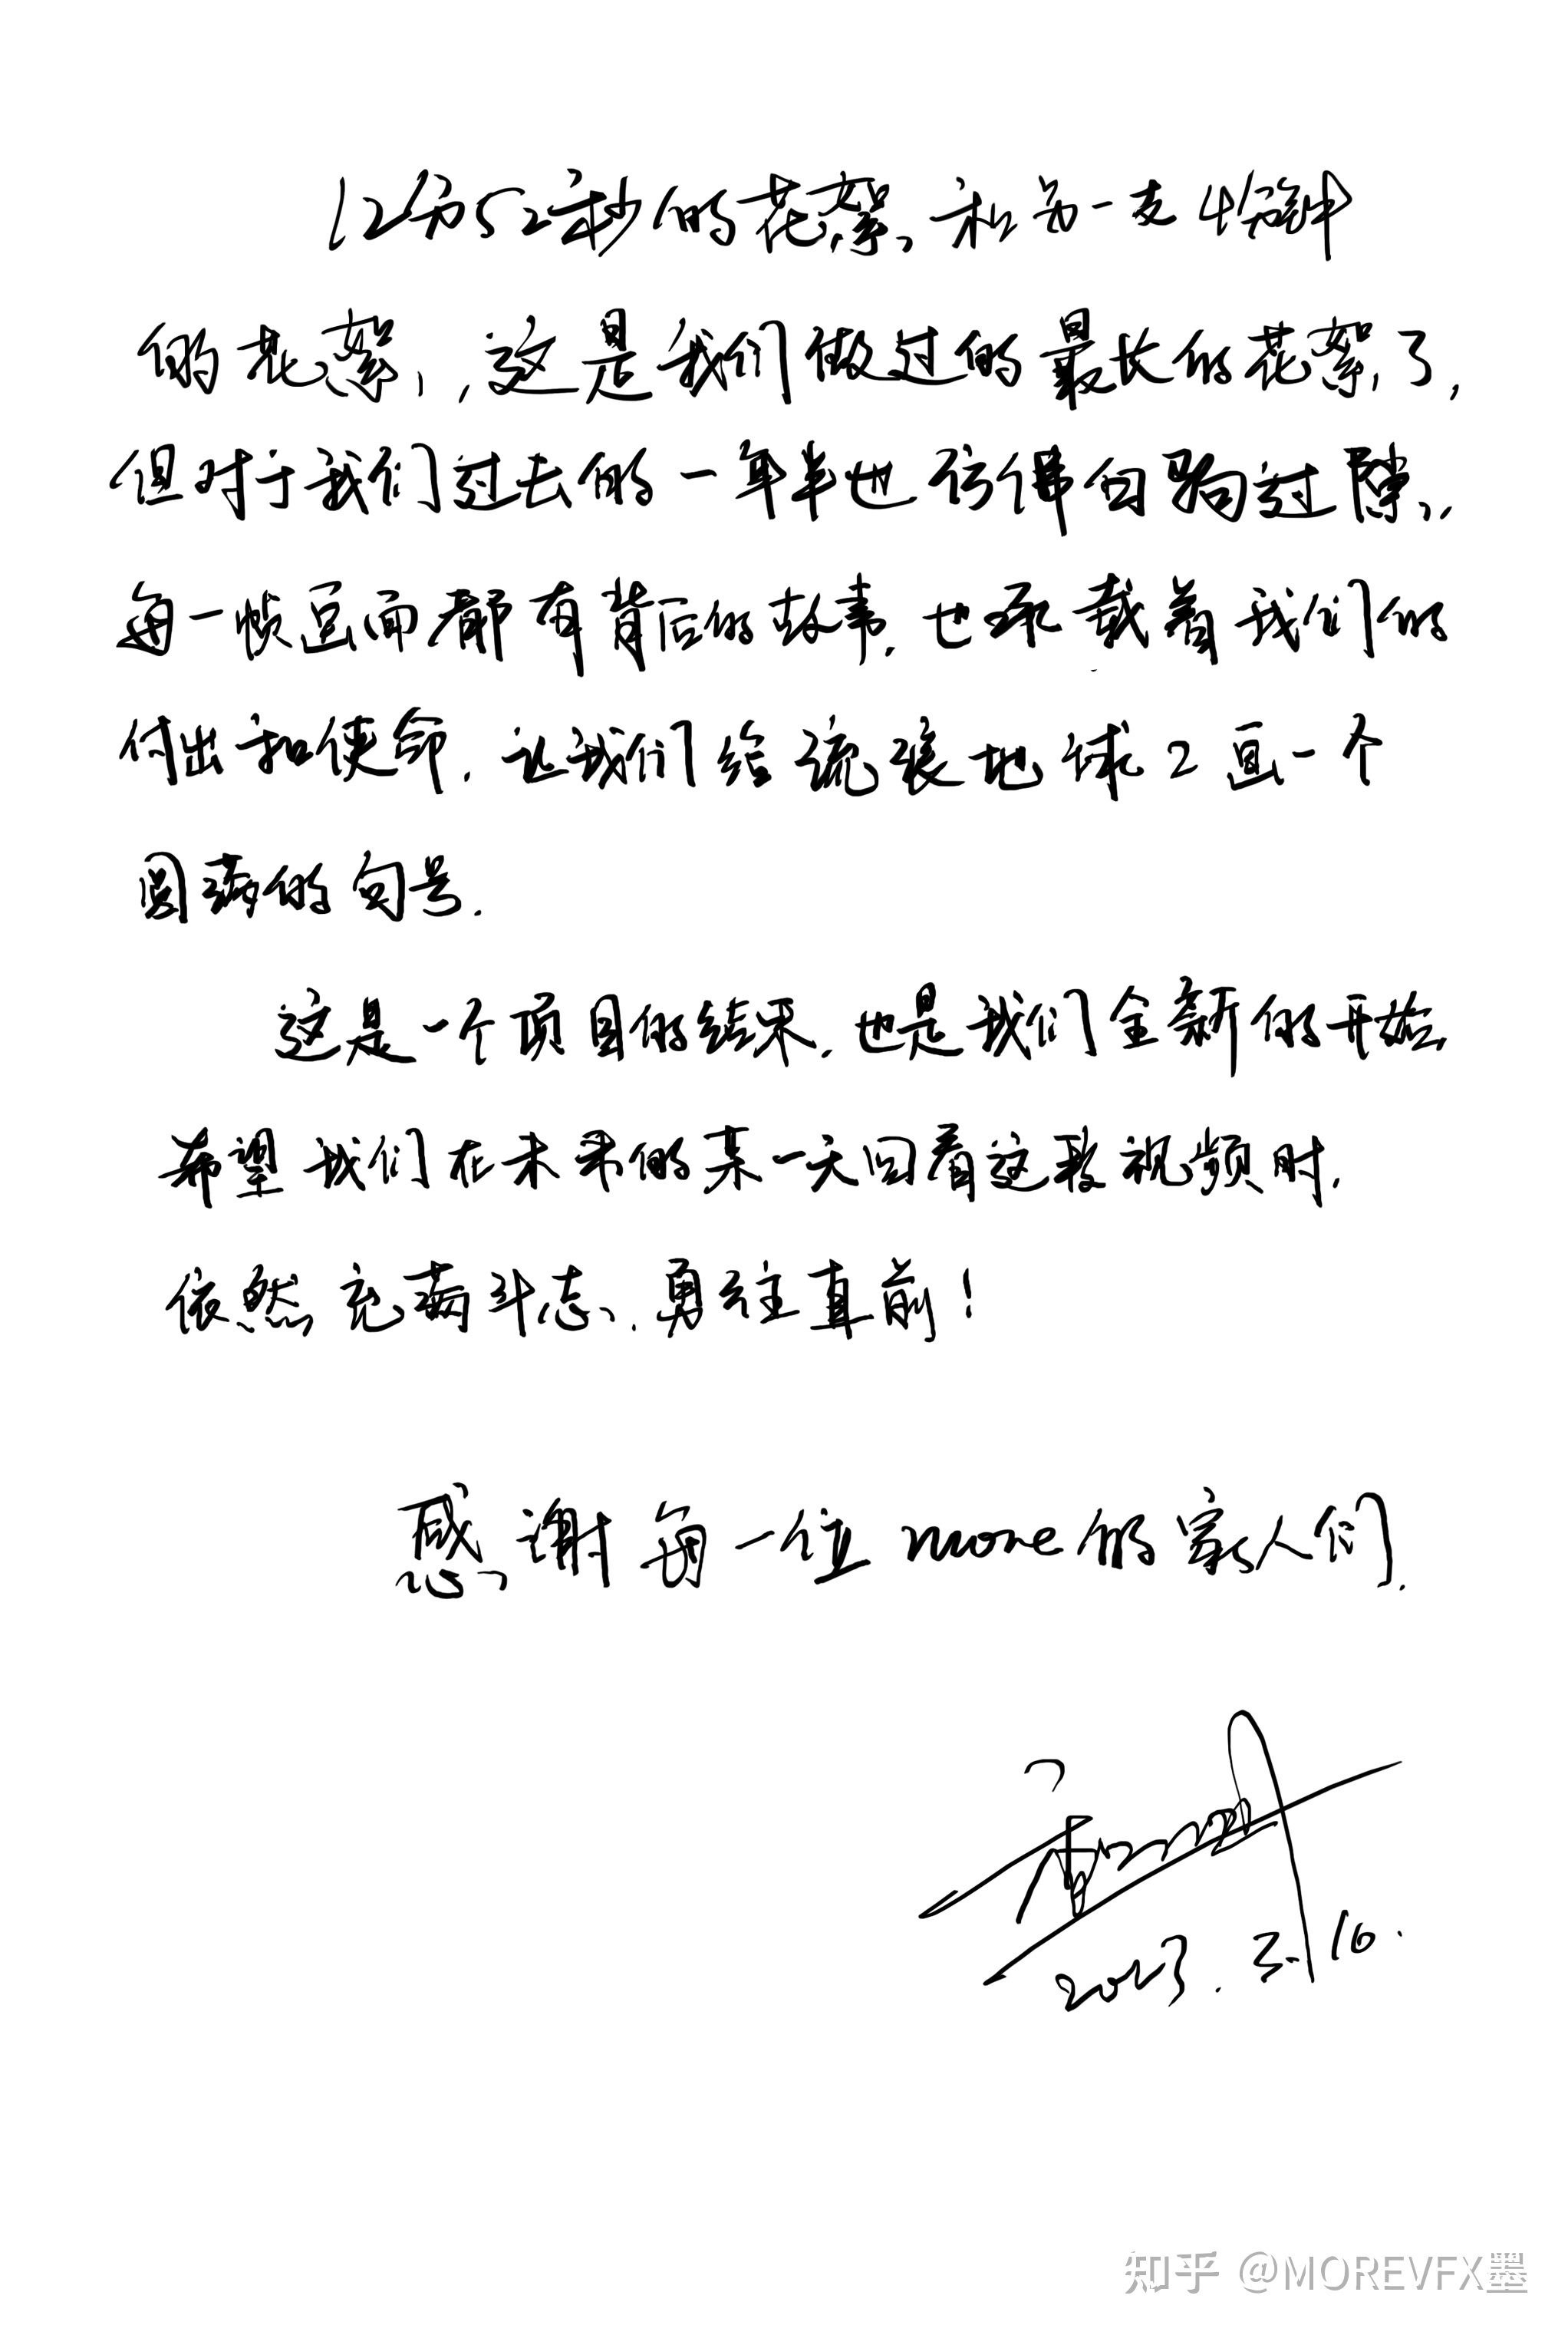 12分52秒的花絮，和另一支4分钟
的花絮，这是我们做过的最长的花絮了，
但对于我们过去的一年半也仿佛白驹过隙，
每一帧画面都有背后的故事，也承载着我们的
付出和使命，让我们给流浪地球2画一个
圆满的句号。
这是一个项目的结束，也是我们全新的开始
希望我们在未来的某一天回看这段视频时，
依然充满斗志、勇往直前！
感谢每一位more的家人们。
2023.3.16.
知乎 @MOREVFX墨